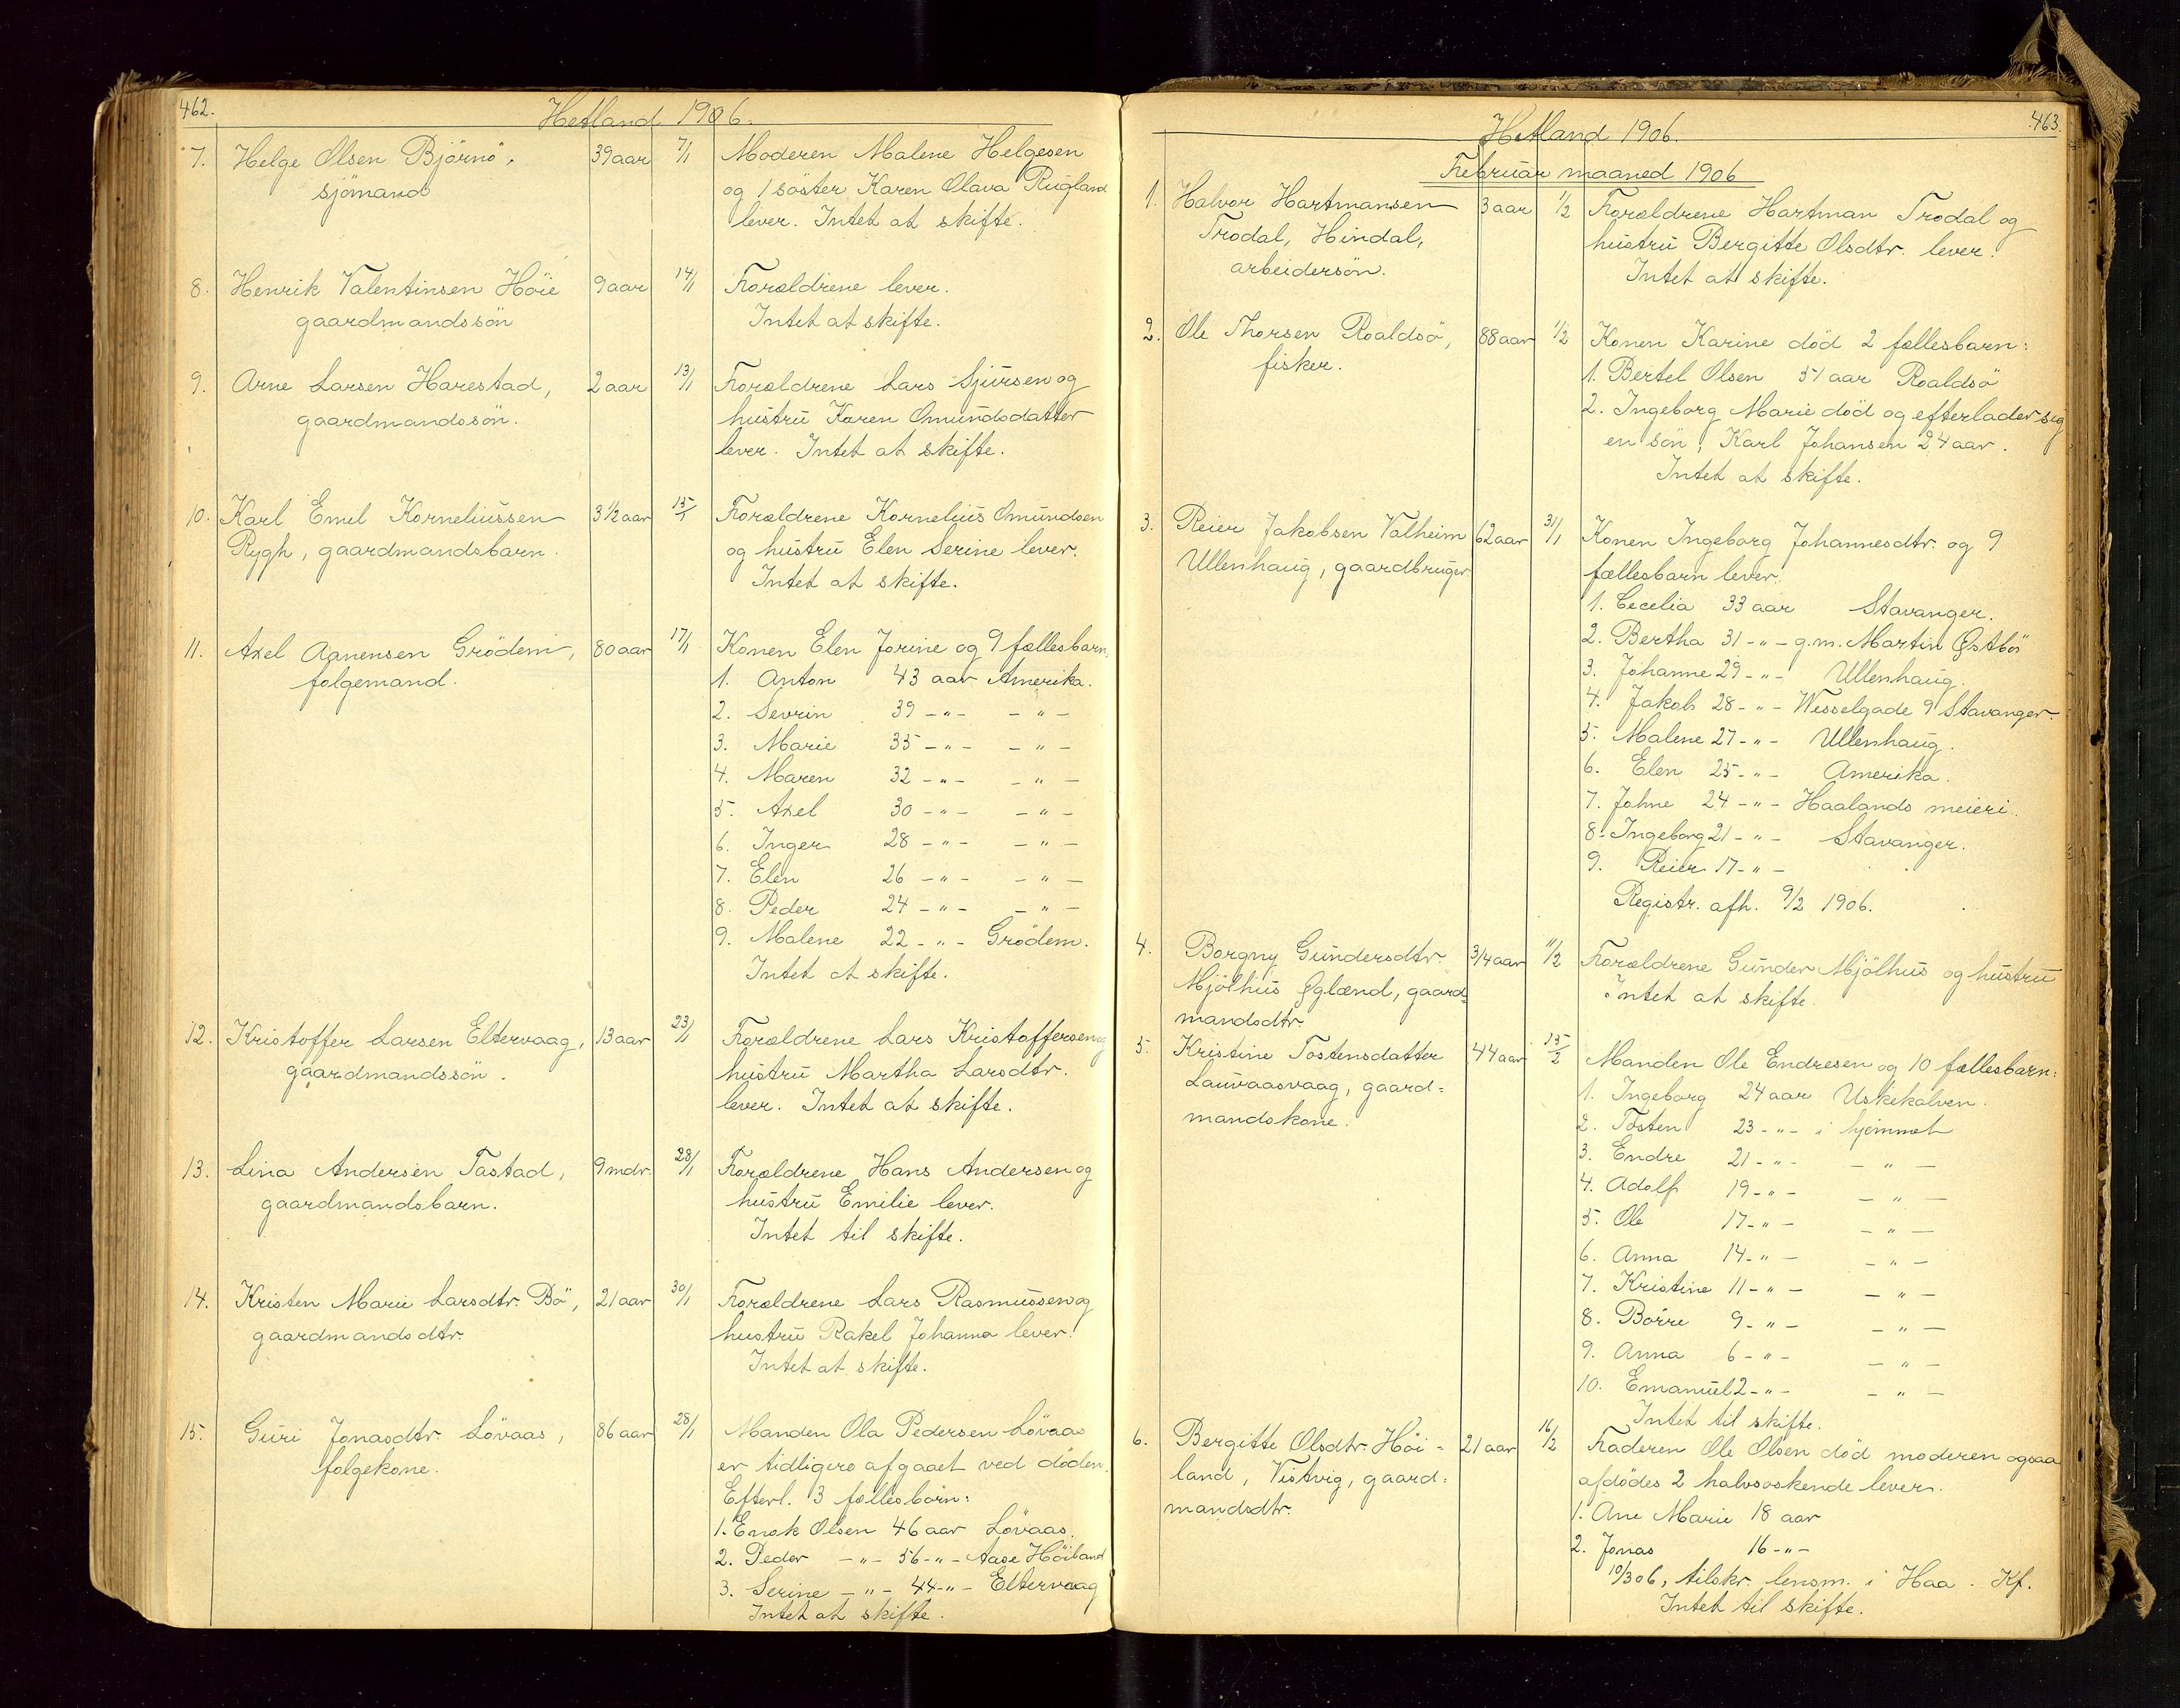 462.
Hetland 1906.
7. Helge Olsen Björnö, 39 aar 7/1 Moderen Malene Helgesen
sjömand og 1 söster Karen Olava Rugland
lever. Intet at skifte.
8. Henrik Valentinsen Höie 9 aar 14/1 Forældrene lever.
gaardmandssön Intet at skifte.
9. Arne Larsen Harestad, 2 aar 13/1 Forældrene Lars Sjursen og
gaardmandssön. hustru Karen Omundsdatter
lever. Intet at skifte.
10. Karl Emel Korneliussen 3 1/2 aar 15/1 Forældrene Kornelius Omundsen
Rygh, gaardmandsbarn. og hustru Elen Serine lever.
Intet at skifte.
11. Axel Aanensen Grödem, 80 aar 17/1 Konen Elen Jorine og 9 fællesbarn.
folgemand. 1. Anton 43 aar Amerika.
2. Sevrin 39 -"- -"-
3. Marie 35 -"- -"-
4. Maren 32 -"- -"-
5. Axel 30 -"- -"-
6. Inger 28 -"- -"-
7. Elen 26 -"- -"-
8. Peder 24 -"- -"-
9. Malene 22 -"- Grödem.
Intet at skifte.
12. Kristoffer Larsen Eltervaag, 13 aar 23/1 Forældrene Lars Kristoffersen og
gaardmandssön. hustru Martha Larsdtr.
lever. Intet at skifte.
13. Lina Andersen Tastad, 9 mdr. 28/1 Forældrene Hans Andersen og
gaardmandsbarn. hustru Emilie lever.
Intet til skifte.
14. Kristen Marie Larsdtr. Bö, 21 aar 30/1 Forældrene Lars Rasmussen og
gaardmandsdtr. hustru Rakel Johanna lever.
Intet at skifte.
15. Guri Jonasdtr Lövaas, 86 aar 28/1 Manden Ola Pedersen Lövaas
folgekone. er tidligere afgaaet ved døden.
Efterl. 3 fællesbörn:
1. Enok Olsen 46 aar Lövaas.
2. Peder -"- 56 -"- Aase Höiland
3. Serine -"- 44 -"- Eltervaag
Intet at skifte.
463.
Hetland 1906.
Februar maaned 1906
1. Halvor Hartmansen 3 aar 1/2 Forældrene Hartman Trodal og
Trodal, Hindal, hustru Bergitte Olsdtr. lever.
arbeidersön. Intet at skifte.
2. Ole Thorsen Roaldsö, 88 aar 1/2 Konen Karine död 2 fællesbarn:
fisker. 1. Bertel Olsen 51 aar Roaldsö
2. Ingeborg Marie død og efterlader sig
en sön, Karl Johansen 24 aar.
Intet at skifte.
3. Reier Jakobsen Valheim 62 aar 31/1 Konen Ingeborg Johannesdtr. og 9
Ullenhaug, gaardbruger. fællesbarn lever.
1. Cecelia 33 aar Stavanger.
2. Bertha 31 -"- g.m. Martin Østbö
3. Johanne 29 -"- Ullenhaug.
4. Jakob 28 -"- Wesselgade 9 Stavanger.
5. Malene 27 -"- Ullenhaug.
6. Elen 25 -"- Amerika.
7. Johne 24 -"- Haalands meieri.
8. Ingeborg 21 -"- Stavanger.
9. Reier 17 -"-
Registr. afh. 9/2 1906.
4. Borgny Gundersdtr. 3/4 aar 11/2 Forældrene Gunder Mjölhus og hustru
Mjölhus Øglænd, gaard- Intet at skifte.
mandsdtr.
5. Kristine Tostensdatter 44 aar 15/2 Manden Ole Endresen og 10 fællesbarn:
Lauvaasvaag, gaard= 1. Ingeborg 24 aar Uskekalven.
mandskone. 2. Tosten 23 -"- i hjemmet
3. Endre 21 -"- -"-
4. Adolf 19 -"- -"-
5. Ole 17 -"- -"-
6. Anna 14 -"- -"-
7. Kristine 11 -"- -"-
8. Börre 9 -"- -"-
9. Anna 6 -"- -"-
10. Emanuel 2 -"- -"-
Intet til skifte.
6. Bergitte Olsdtr. Höi- 21 aar 16/2 Faderen Ole Olsen död moderen ogsaa
land, Vistvig, gaard= afdödes 2 halvsøskende lever.
mandsdtr. 1. Ane Marie 18 aar
2. Jonas 16 -"-
10/3 06, tilskr. lensm. i Haa. Kf.
Intet til skifte.